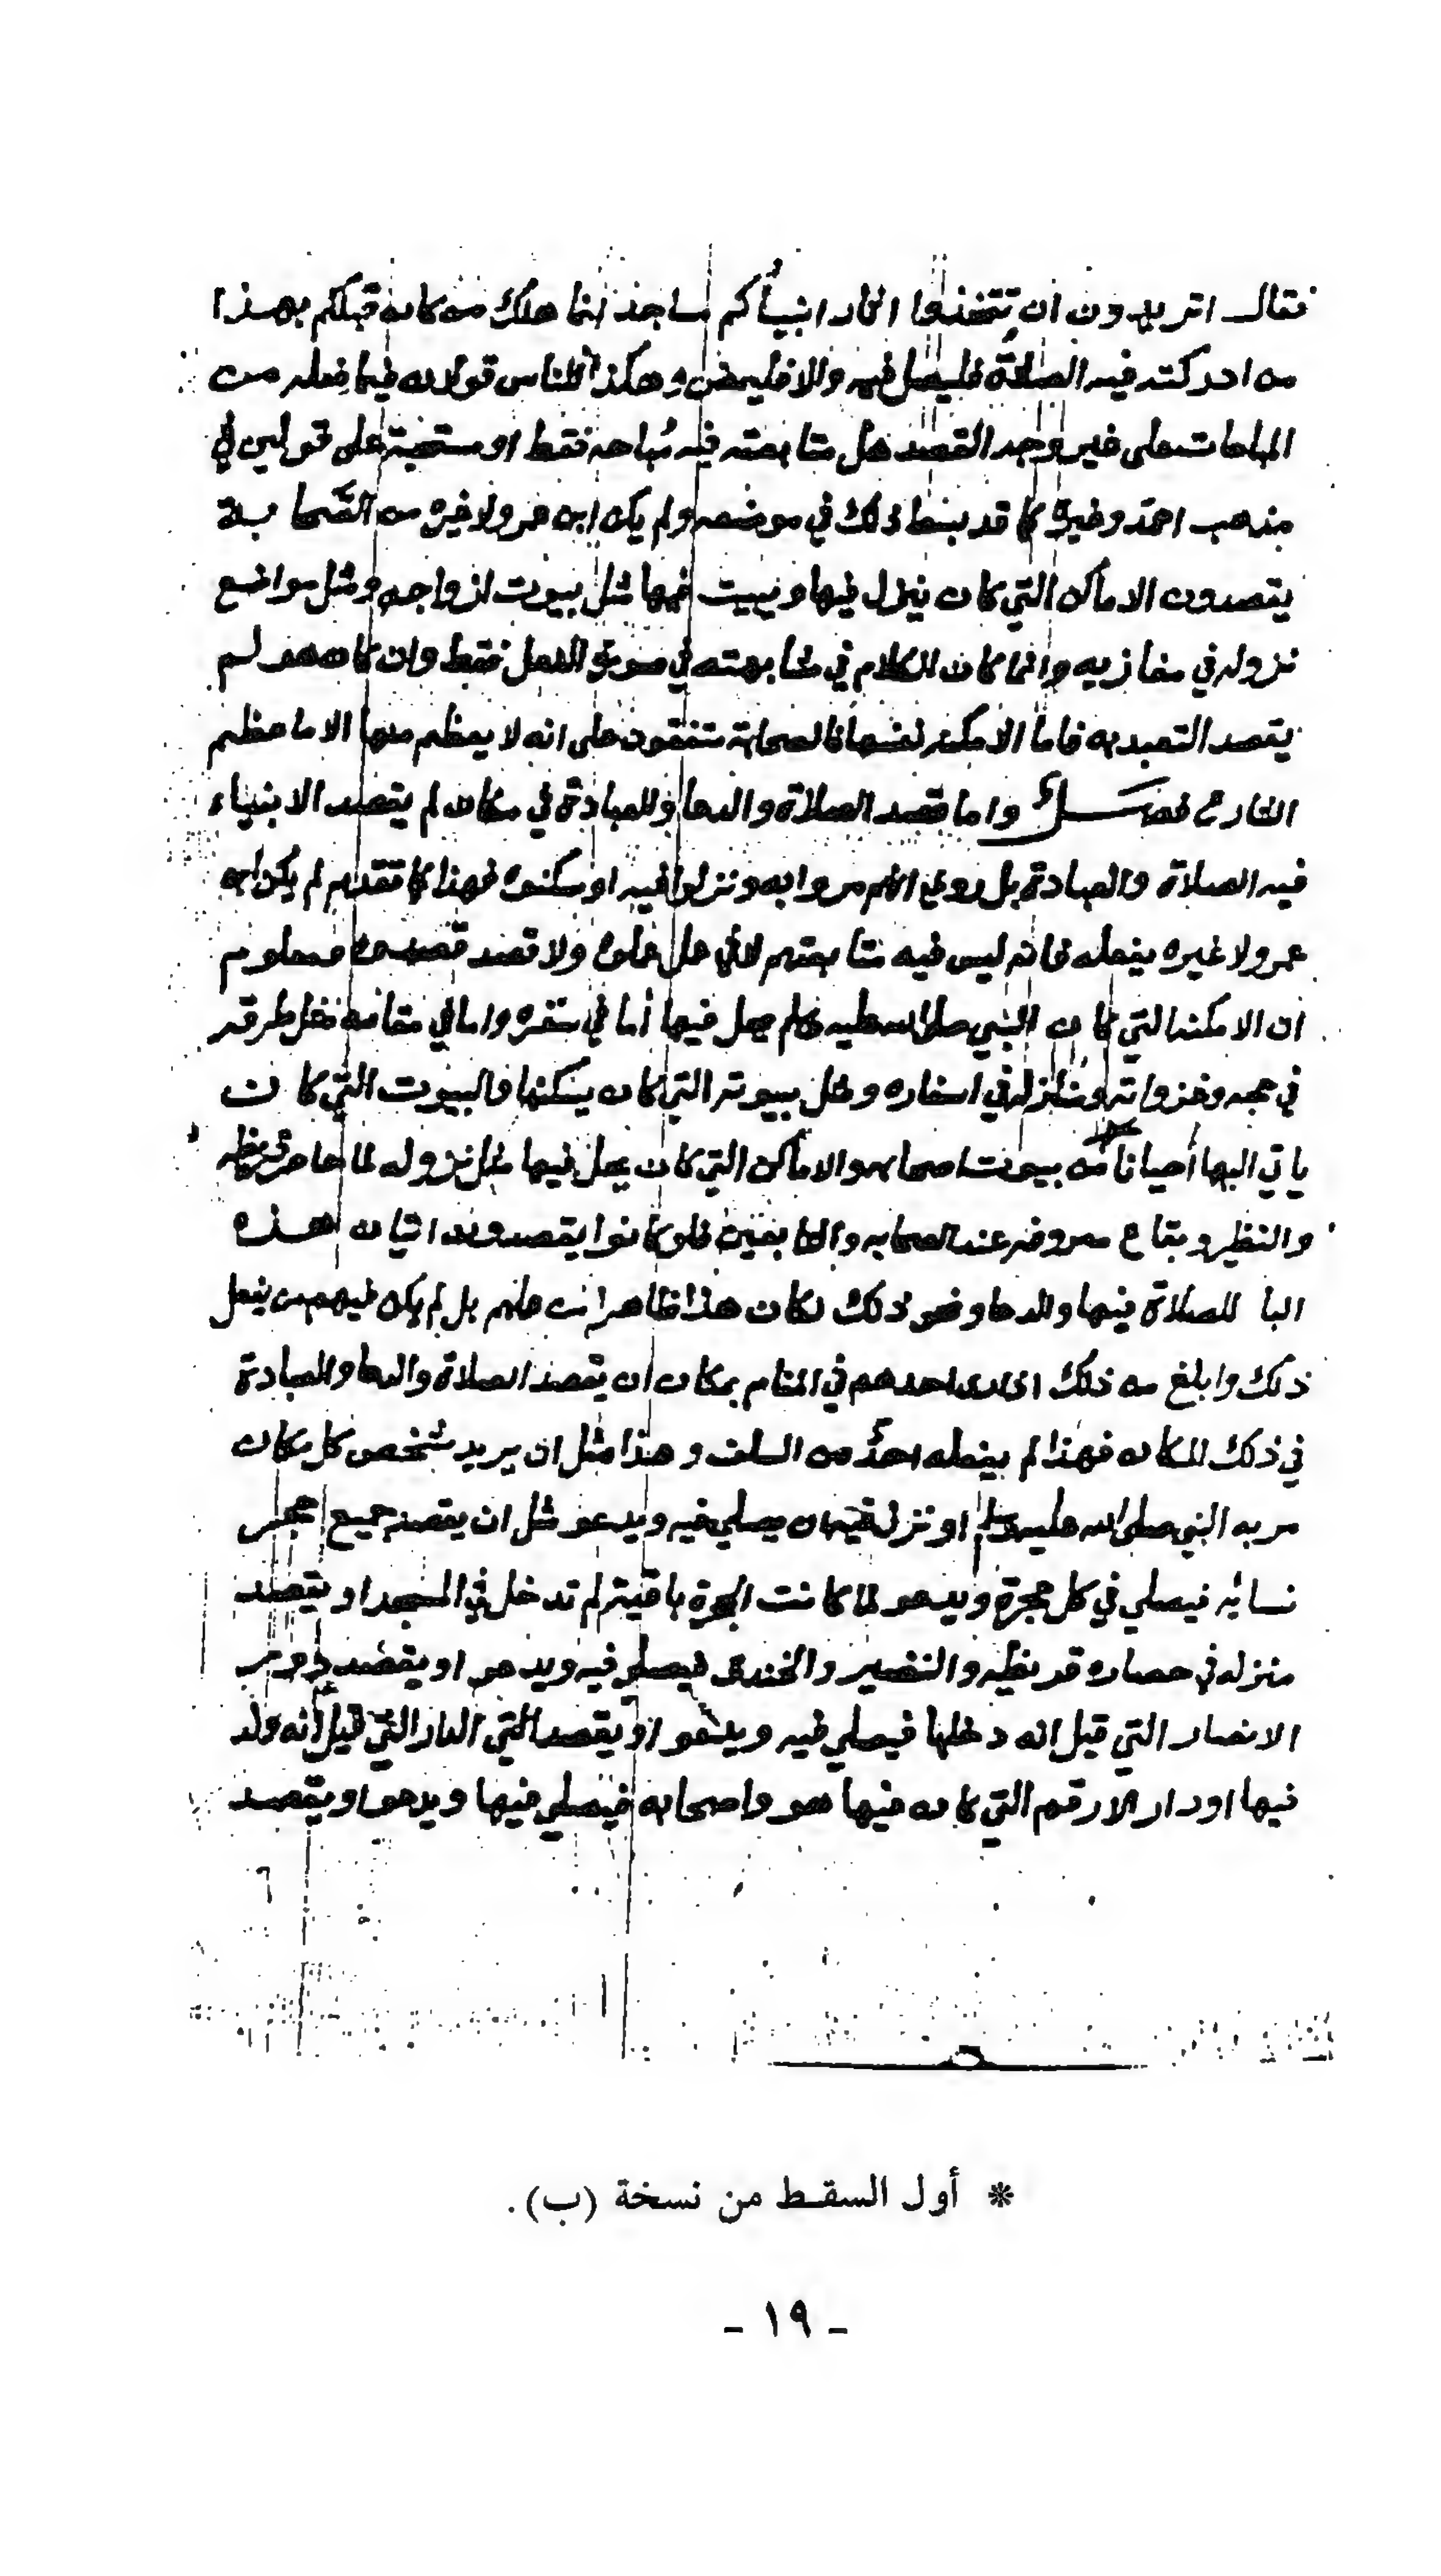 فقال اتريدون ان تتخذوا اثار انبيأكم مساجد انما هلك من كان قبلكم بهذا
من ادركته فيه الصلاة فليصل فيه والا فليمض وهكذا للناس قولان فيما فعله من
المباحات على غير وجه القصد هل متابعته فيه مباحه فقط او مستحبة على قولين في
مذهب احمد وغيره كما قد بسط ذلك في موضعه ولم يكن ابن عمر ولا غيره من الصحابة
يقصدون الاماكن التي كان ينزل فيها ويبيت فيها مثل بيوت ازواجه ومثل مواضع
نزوله في مغازيه وانما كان الكلام في مشابهته في صورة الفعل فقط وان كان هو لم
يقصد التعبد به فاما الامكنه نفسها فالصحابة متفقون على انه لا يعظم منها الا ما عظم
الشارع فصل واما قصد الصلاة والدعا والعبادة في مكان لم يقصد الانبياء
فيه الصلاة والعبادة بل روي انهم مروا به ونزلوا فيه او سكنوه فهذا كما تقدم لم يكن ابن
عمر ولا غيره يفعله فانه ليس فيه متابعتهم لا في عمل عملوه ولا قصد قصدوه ومعلوم
ان الامكنه التي كان النبي صلى الله عليه وسلم يحل فيها أما في سفره واما في مقامه مثل طرقه
في حجه وغزواته ومنازله في اسفاره ومثل بيوته التي كان يسكنها والبيوت التي كان
ياتي اليها أحيانا من بيوت اصحابه والاماكن التي كان يحل فيها مثل نزوله لما حاصر قريظه
والنظير وبقاع معروفه عند الصحابه والتابعين فلو كانوا يقصدون اتيان هذه
البا للصلاة فيها وللدعا ونحو ذلك لكان هذا ظاهرا عنهم بل لم يكن فيهم من يفعل
ذلك وابلغ من ذلك احدهم في المنام بمكان ان يقصد الصلاة والدعا والعبادة
في ذلك المكان فهذا لم يفعله احدٌ من السلف وهذا مثل ان يريد شخص كل مكان
مر به النبي صلى الله عليه وسلم او نزل فيه ان يصلي فيه ويدعو مثل ان يقصد جميع حجر
نسائه فيصلي في كل حجرة ويدعو لما كانت الحجرة باقية لم تدخل في المسجد او يقصد
منزله في حصاره قريظه والنضير والخندق فيصلي فيه ويدعو او يقصد دور
الانصار التي قيل انه دخلها فيصلي فيه ويدعو او يقصد التي الدار التي قيل أنه ولد
فيها او دار الارقم التي كان فيها هو واصحابه فيصلي فيها ويدعوا ويقصد
* أول السقط من نسخة (ب).
- ١٩ -